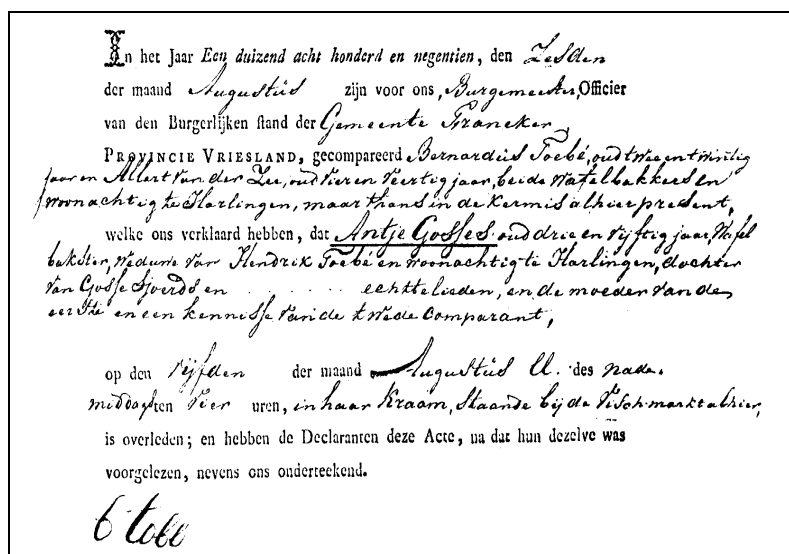 In het Jaar Een duizend acht honderd en negentien, den Zesden
der maand Augustus zijn voor ons, Burgemeester, Officier
van den Burgerlijken stand der Gemeente Franeker,
PROVINCIE VRIESLAND, gecompareerd Bernardus Toebé, oud twee en twintig
jaar en Allert van der Zee, oud vier en veertig jaar, beide wafelbakkers en
woonachtig te Harlingen, maar thans in de kermis alhier present,
welke ons verklaard hebben, dat Antje Gosses oud drie en vijftig jaar, Wafel
bakster, weduwe van Hendrik Toebé en woonachtig te Harlingen, dochter
van Gosse Sjoerds en . . . . . . . echtelieden, en de moeder van de
eerste en een kennisse van de twede Comparant,
op den vijfden der maand Augustus ll. des nade
middags ten vier uren, in haar Kraam, staande bij de Vischmarkt alhier,
is overleden; en hebben de Declaranten deze Acte, na dat hun dezelve was
voorgelezen, nevens ons onderteekend.